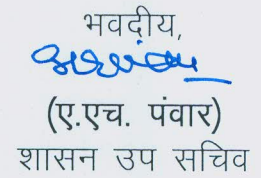 भवदीय,
(ए.एच. पंवार)
शासन उप सचिव